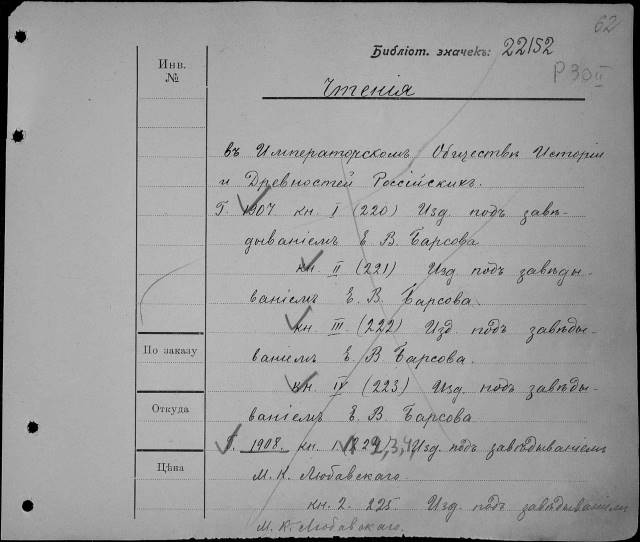 62
Библіот. значекъ: 22152
Р30 II
Инв.
№
Чтенія
въ Императорскомъ Обществѣ Исторіи
и Древностей Россійскихъ.
Г. 1907 кн. I (220) Изд. подъ завѣ-
дываніемъ Е. В. Барсова
кн. II (221) Изд подъ завѣды-
ваніемъ Е. В. Барсова.
кн. III (222) Изд подъ завѣды-
ваніемъ Е. В Барсова.
кн. IV (223) Изд. подъ завѣды-
ваніемъ Е. В Барсова
По заказу
Откуда
Цѣна
Г. 1908. кн. 1 Изд. подъ завѣдываніемъ
М. К. Любавскаго.
кн. 2. 225. Изд. подъ завѣдываніемъ
М. К. Любавскаго.